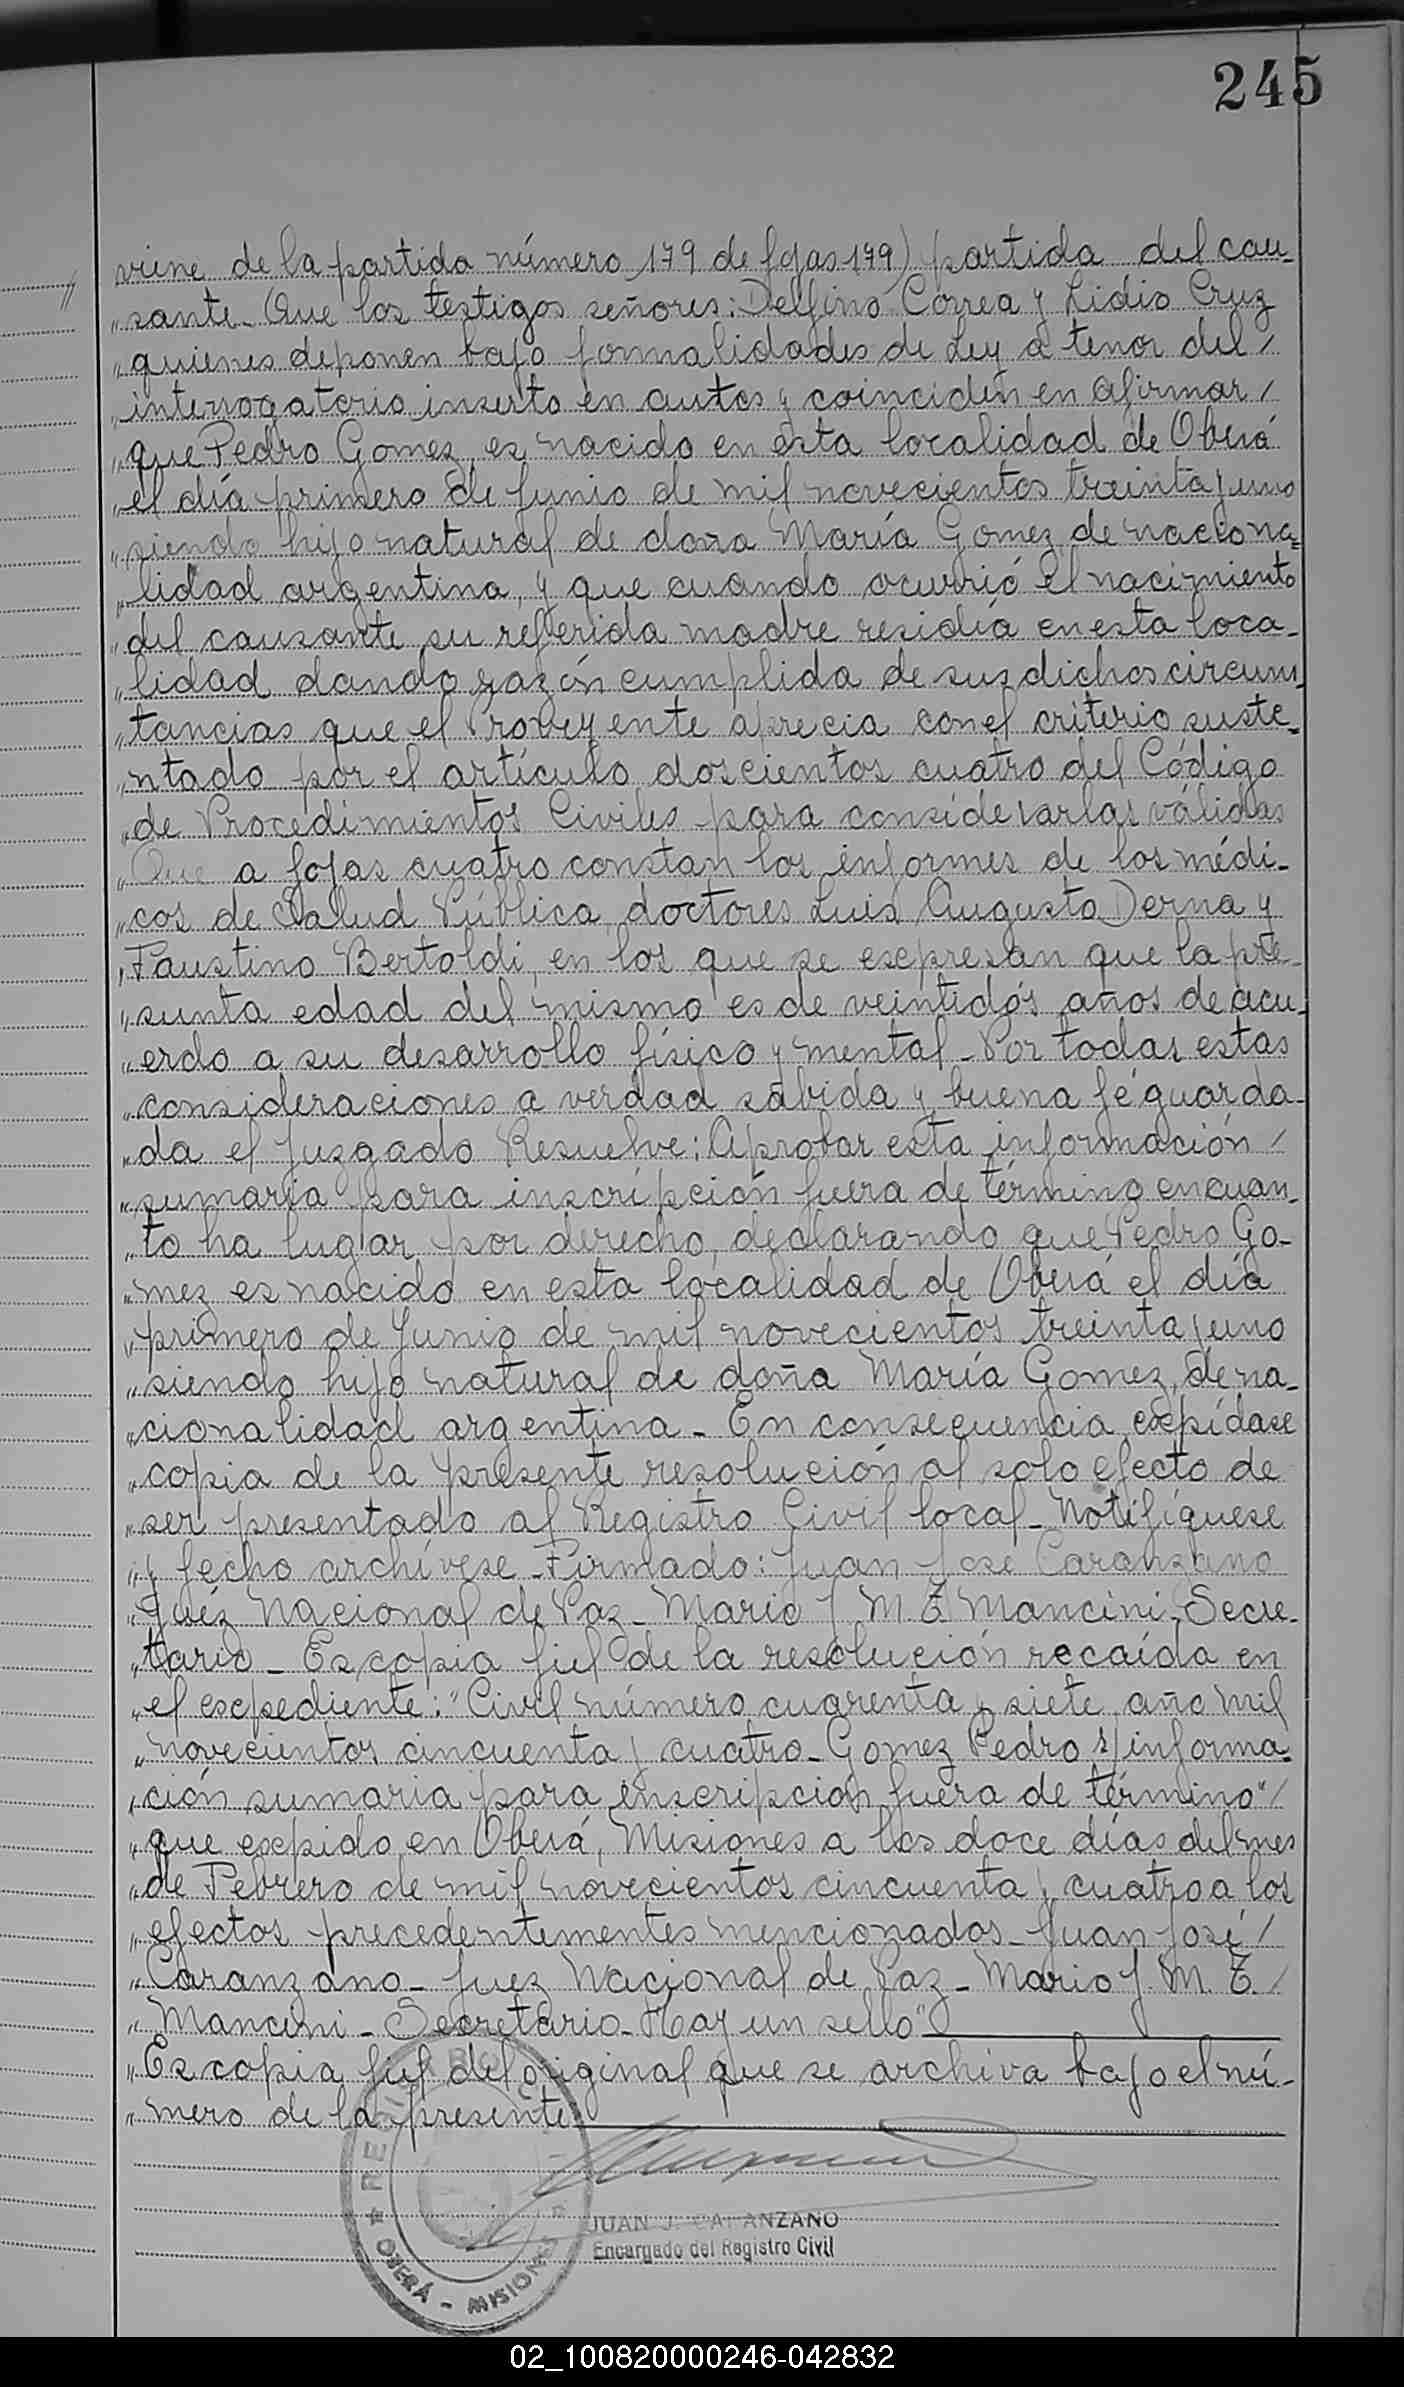 245
viene de la partida número 179 de fojas 179) partida del cau-
„sante. Que los testigos señores: Delfino Correa y Lidio Cruz
„quienes deponen bajo formalidades de Ley a tenor del /
„interrogatorio inserto en autos y coinciden en afirmar /
„que Pedro Gomez, es nacido en esta localidad de Oberá
„el día primero de Junio de mil novecientos treinta y uno
„siendo hijo natural de doña María Gomez, de naciona=
„lidad argentina, y que cuando ocurrió el nacimiento
„del causante, su referida madre residía en esta loca-
„lidad dando razón cumplida de sus dichos circuns
„tancias que el Proveyente aprecia con el criterio suste-
„ntado por el artículo doscientos cuatro del Código
„de Procedimientos Civiles para considerarlas válidas
„Que a fojas cuatro constan los informes de los médi-
„cos de Salud Pública, doctores Luis Augusto Derna y
„Faustino Bertoldi, en los que se escpresan que la pre-
„sunta edad del mismo es de veintidós años de acu-
„erdo a su desarrollo físico y mental - Por todas estas
„consideraciones a verdad sabida y buena fé guarda-
„da el Juzgado Resuelve: Aprobar esta información /
„sumaria para inscripción fuera de término en cuan-
„to ha lugar por derecho, declarando que Pedro Go-
„mez es nacido en esta localidad de Oberá el día
„primero de Junio de mil novecientos treinta y uno
„siendo hijo natural de doña María Gomez, de na-
„cionalidad argentina - En consecuencia, escpídase
„copia de la presente resolución al solo efecto de
„ser presentado al Registro Civil local - Notifíquese
„y fecho archívese - Firmado: Juan José Caranzano
„Juéz Nacional de Paz - Mario J. M. E. Mancini - Secre-
„tario - Es copia fiel de la resolución recaída en
„el escpediente: "Civil número cuarenta y siete, año mil
„novecientos cincuenta y cuatro - Gomez Pedro s/informa-
„ción sumaria para inscripcion fuera de término" /
„que escpido en Oberá, Misiones a los doce días del mes
„de Febrero de mil novecientos cincuenta y cuatro a los
„efectos precedentementes mencionados - Juan José /
„Caranzano - Juez Nacional de Paz - Mario J. M. E. /
„Mancini - Secretario - Hay un sello"
„Es copia fiel del original que se archiva bajo el nú-
„mero de la presente
JUAN J. CARANZANO
Encargado del Registro Civil
OBERÁ - MISIONES
02_100820000246-042832